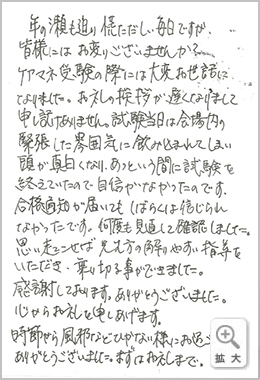 年の瀬も迫り慌ただしい毎日ですが、
皆様にはお変りございませんか?
ケアマネ受験の際には大変お世話に
なりました。お礼の挨拶が遅くなりまして
申し訳ありません。試験当日は会場内の
緊張した雰囲気に飲み込まれてしまい
頭が真白くなり、あっという間に試験を
終えていたので自信がなかったのです。
合格通知が届いてもしばらくは信じられ
なかったです。何度も見返し確認しました。
思い起こせば 先方の解りやすい指導を
いただき、乗り切る事ができました。
感謝しております。ありがとうございました。
心からお礼を申しあげます。
時節から風邪などひかない様にお
ありがとうございました。まずはお礼まで。
拡大